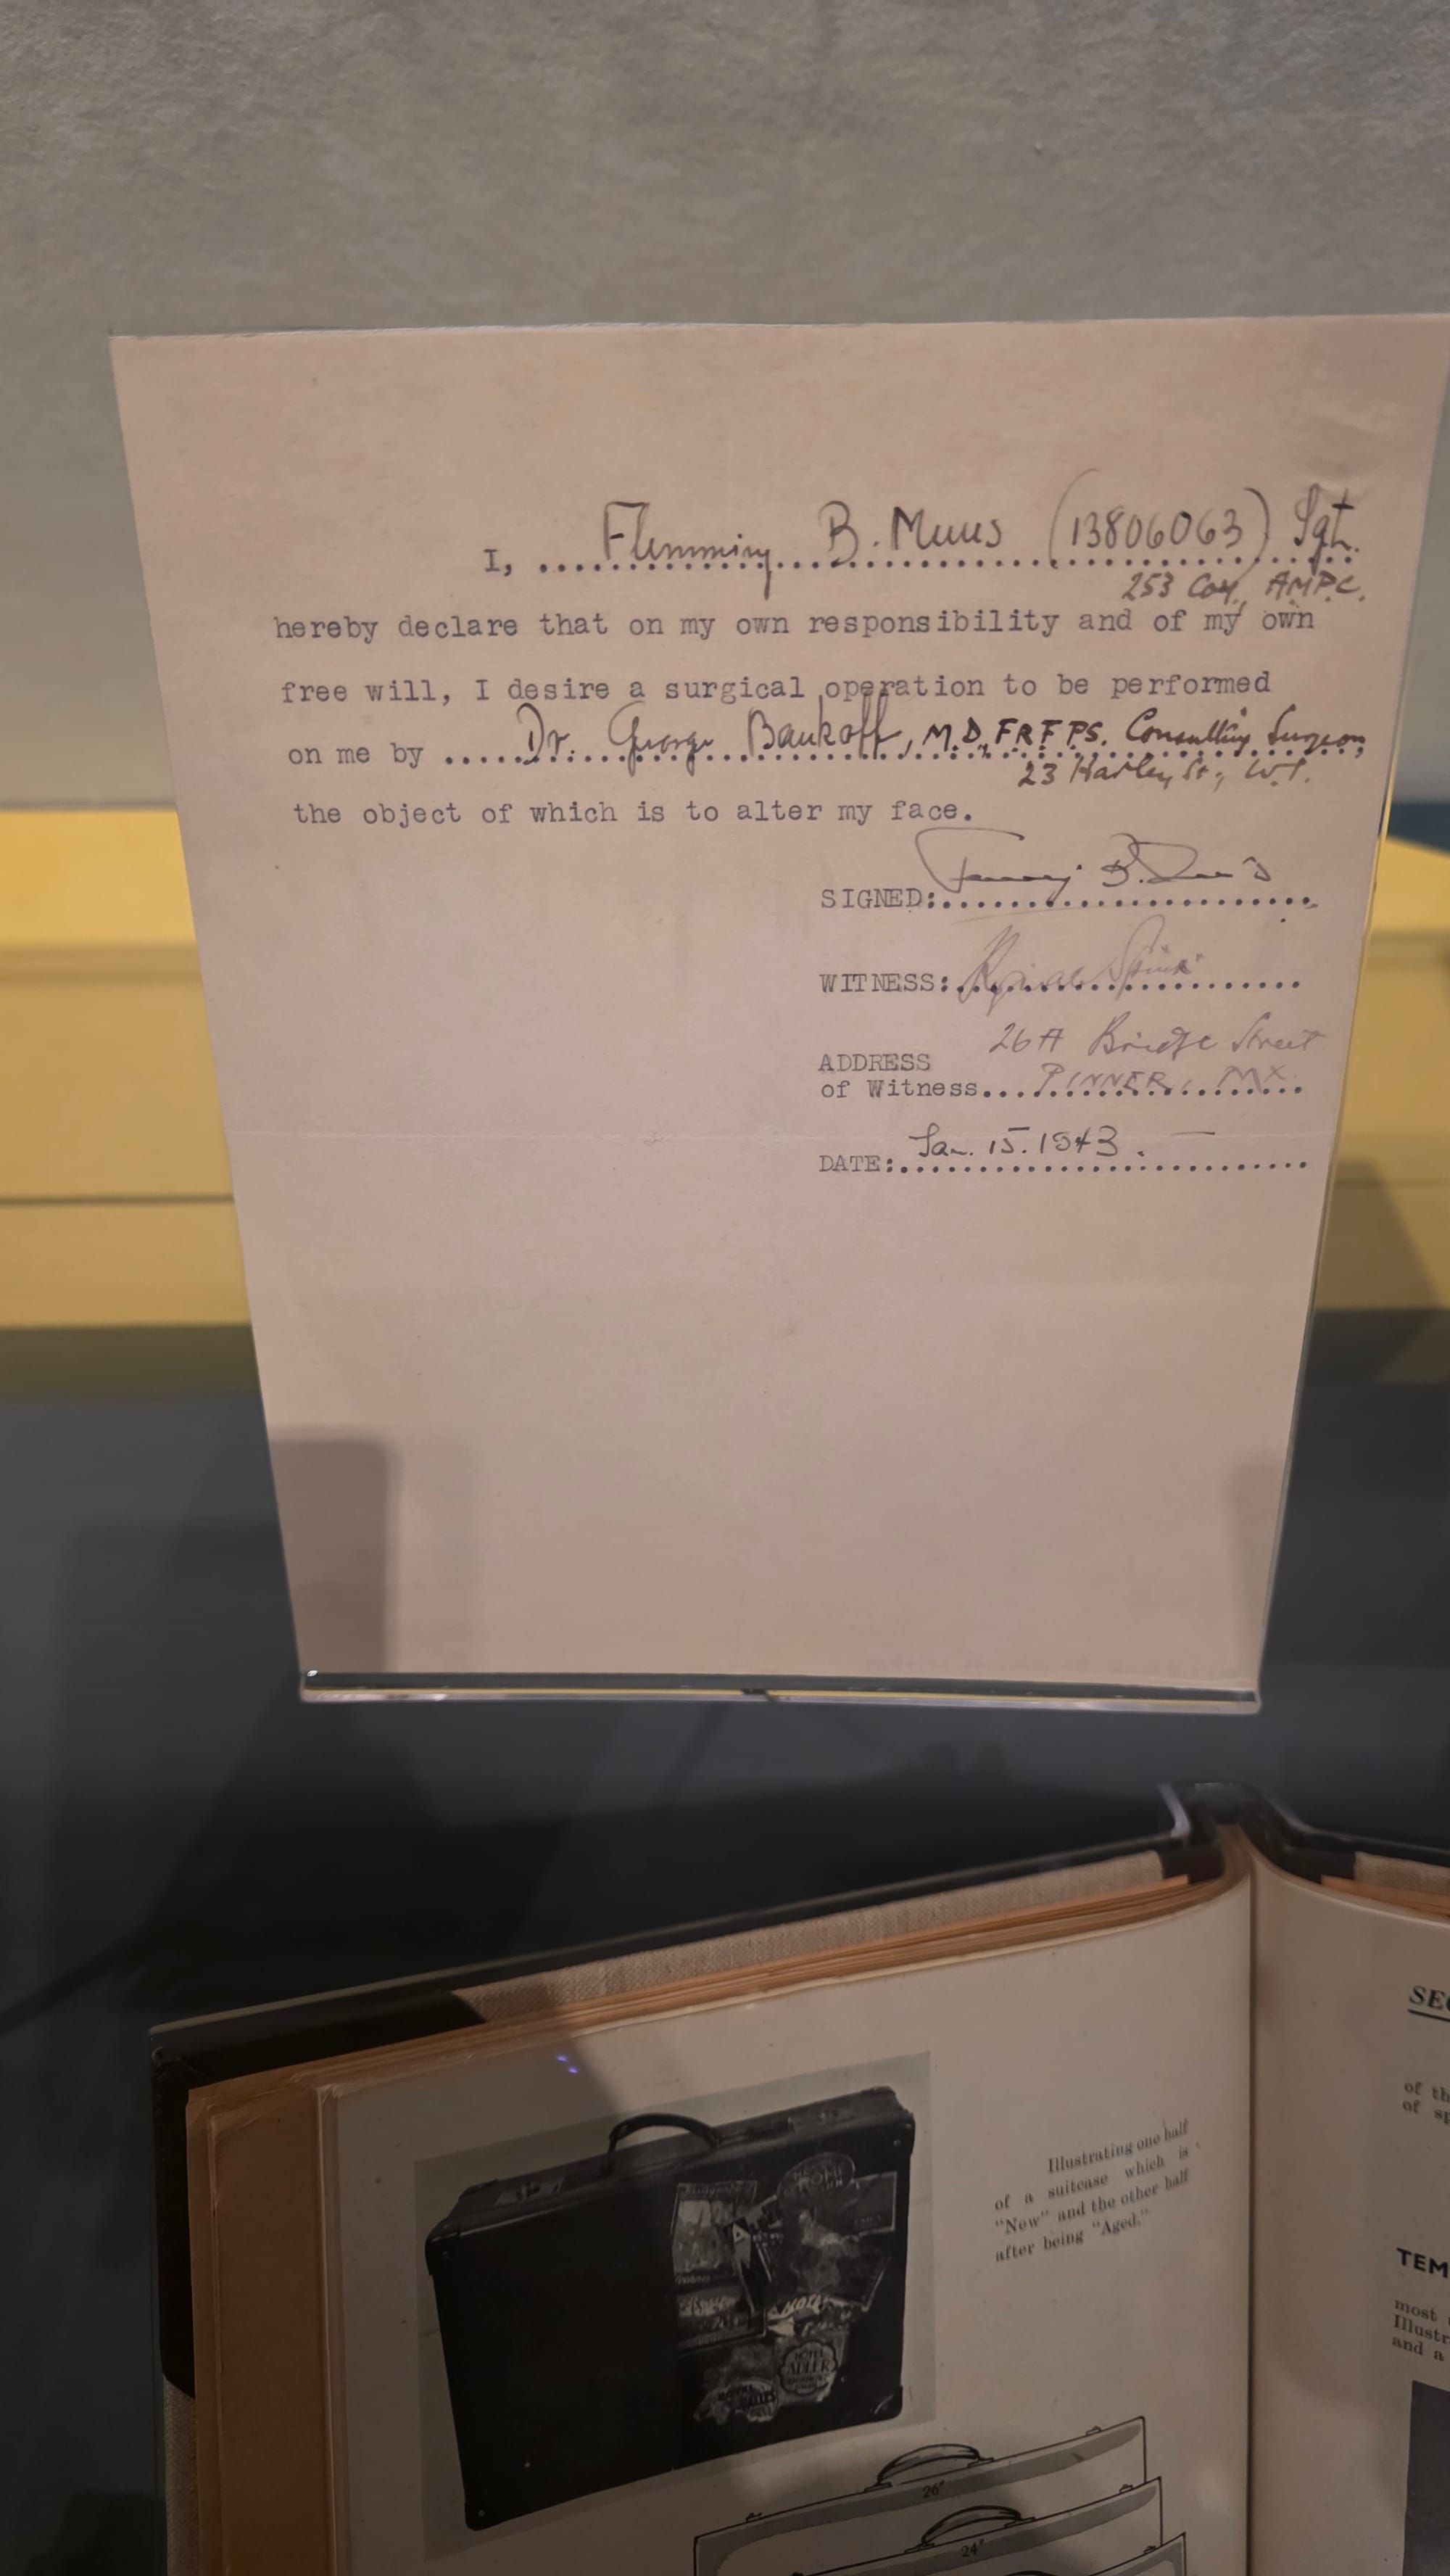 I, Flemming B. Muus (13806063) Sgt.
253 Coy, AMPC.
hereby declare that on my own responsibility and of my own
free will, I desire a surgical operation to be performed
on me by Dr. George Bankoff, M.D., F.R.F.P.S. Consulting Surgeon,
23 Harley St., W.1.
the object of which is to alter my face.
SIGNED: B.
WITNESS:
26A Bridge Street
ADDRESS
of Witness... PINNER, MX.
DATE: Jan. 15. 1943.
Illustrating one half
of a suitcase which is
"New" and the other half
after being "Aged."
HOTEL
ADLER
26"
24"
SEC
of th
of sp
TEM
most
Illustr
and a